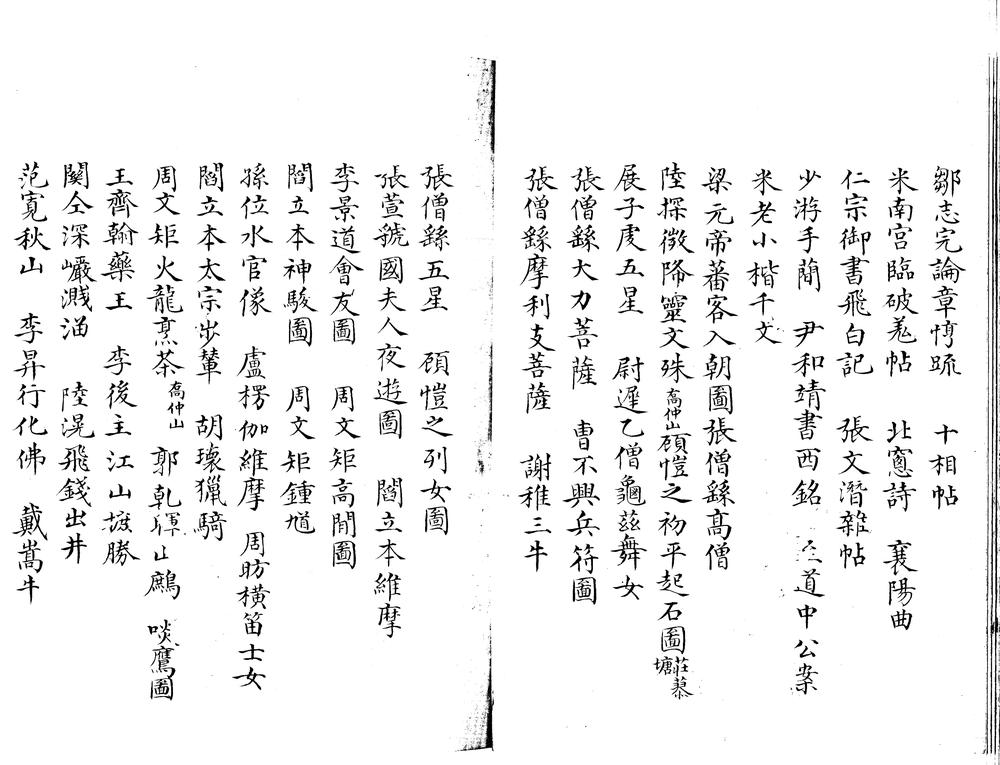 鄒志完論章惇䟽　十相帖
米南宮臨破羗帖　北窻詩　襄陽曲
仁宗御書飛白記　張文潛雜帖
少游手蕳　尹和靖書西銘　道中公案
米老小楷千文
梁元帝蕃客入朝圖張僧繇高僧
陸探微降靈文殊高仲山顧愷之初平起石圖莊蓼塘
展子虔五星　尉遲乙僧龜茲舞女
張僧繇大力菩薩　曹不興兵符圖
張僧繇摩利支菩薩　謝稚三牛
張僧繇五星　顧愷之列女圖
張萱虢國夫人夜遊圖　閻立本維摩
李景道會友圖　周文矩高閒圖
閻立本神駿圖　周文矩鍾馗
孫位水官像　盧楞伽維摩　周昉橫笛士女
閻立本太宗步輦　胡瓌獵騎
周文矩火龍烹茶高仲山　郭乾暉山鷓　啖鷹圖
王齊翰藥王　李後主江山摭勝
關仝深巖濺溜　陸滉飛錢出井
范寬秋山　李昇行化佛　戴嵩牛